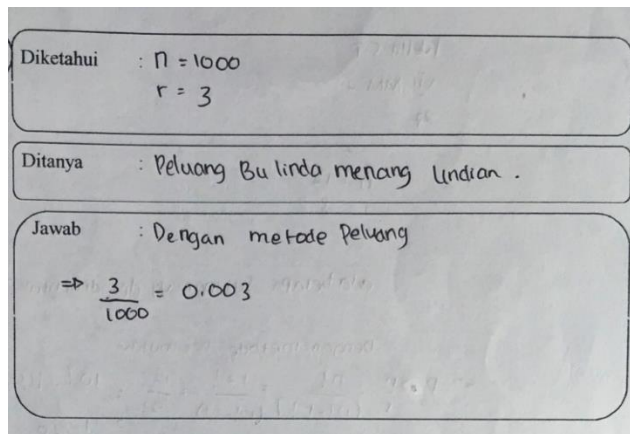 Diketahui : n = 1000
r = 3
Ditanya : Peluang Bu linda menang Undian .
Jawab : Dengan metode Peluang
⇒ 3/1000 = 0.003